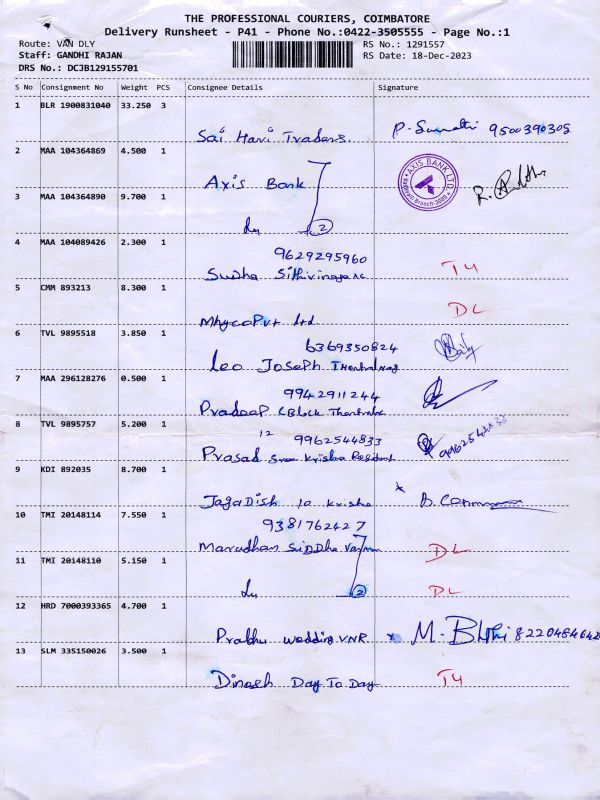 THE PROFESSIONAL COURIERS, COIMBATORE
Delivery Runsheet - P41 - Phone No.:0422-3505555 - Page No.:1
Route: VAN DLY RS No.: 1291557
Staff: GANDHI RAJAN RS Date: 18-Dec-2023
DRS No.: DCJB129155701
S No Consignment No Weight PCS Consignee Details Signature
1 BLR 1900831040 33.250 3
Sai Hari Traders. P. Sumathi 9500390305
2 MAA 104364869 4.500 1
Axis Bank
AXIS BANK LTD
3 MAA 104364890 9.700 1
2
4 MAA 104089426 2.300 1
9629295960
Sudha T4
5 CMM 893213 8.300 1
DL
Mhyco Pvt Ltd
6 TVL 9895518 3.850 1
6369350824
Leo Joseph
7 MAA 296128276 0.500 1
9942911244
Pradeep C Block
8 TVL 9895757 5.200 1
12 9962544833 9962544833
Prasad Sree Krishna
9 KDI 892035 8.700 1
Jagadish 10 Krishe
10 TMI 20148114 7.550 1
9381762427
Marudhan Siddha DL
11 TMI 20148110 5.150 1
2 DL
12 HRD 7000393365 4.700 1
Prabhu wedding VNR
13 SLM 335150026 3.500 1
Dinesh Day To Day T4